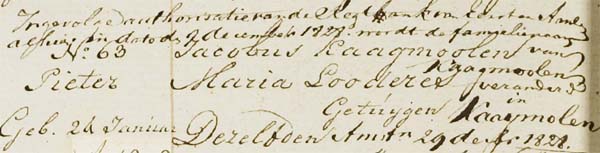 Ingevolge authorisatie van de Regtbank van Eerste Aanleg
alhier in dato de 2 december 1828 wordt de familienaam
No. 63 Jacobus Kaagmoolen van
Pieter Maria Looderer Kaagmoolen
veranderd
in
Getuijgen Kaagmolen
Geb. 24 Januar Dezelfden Amstr 29 de Ar 1828.